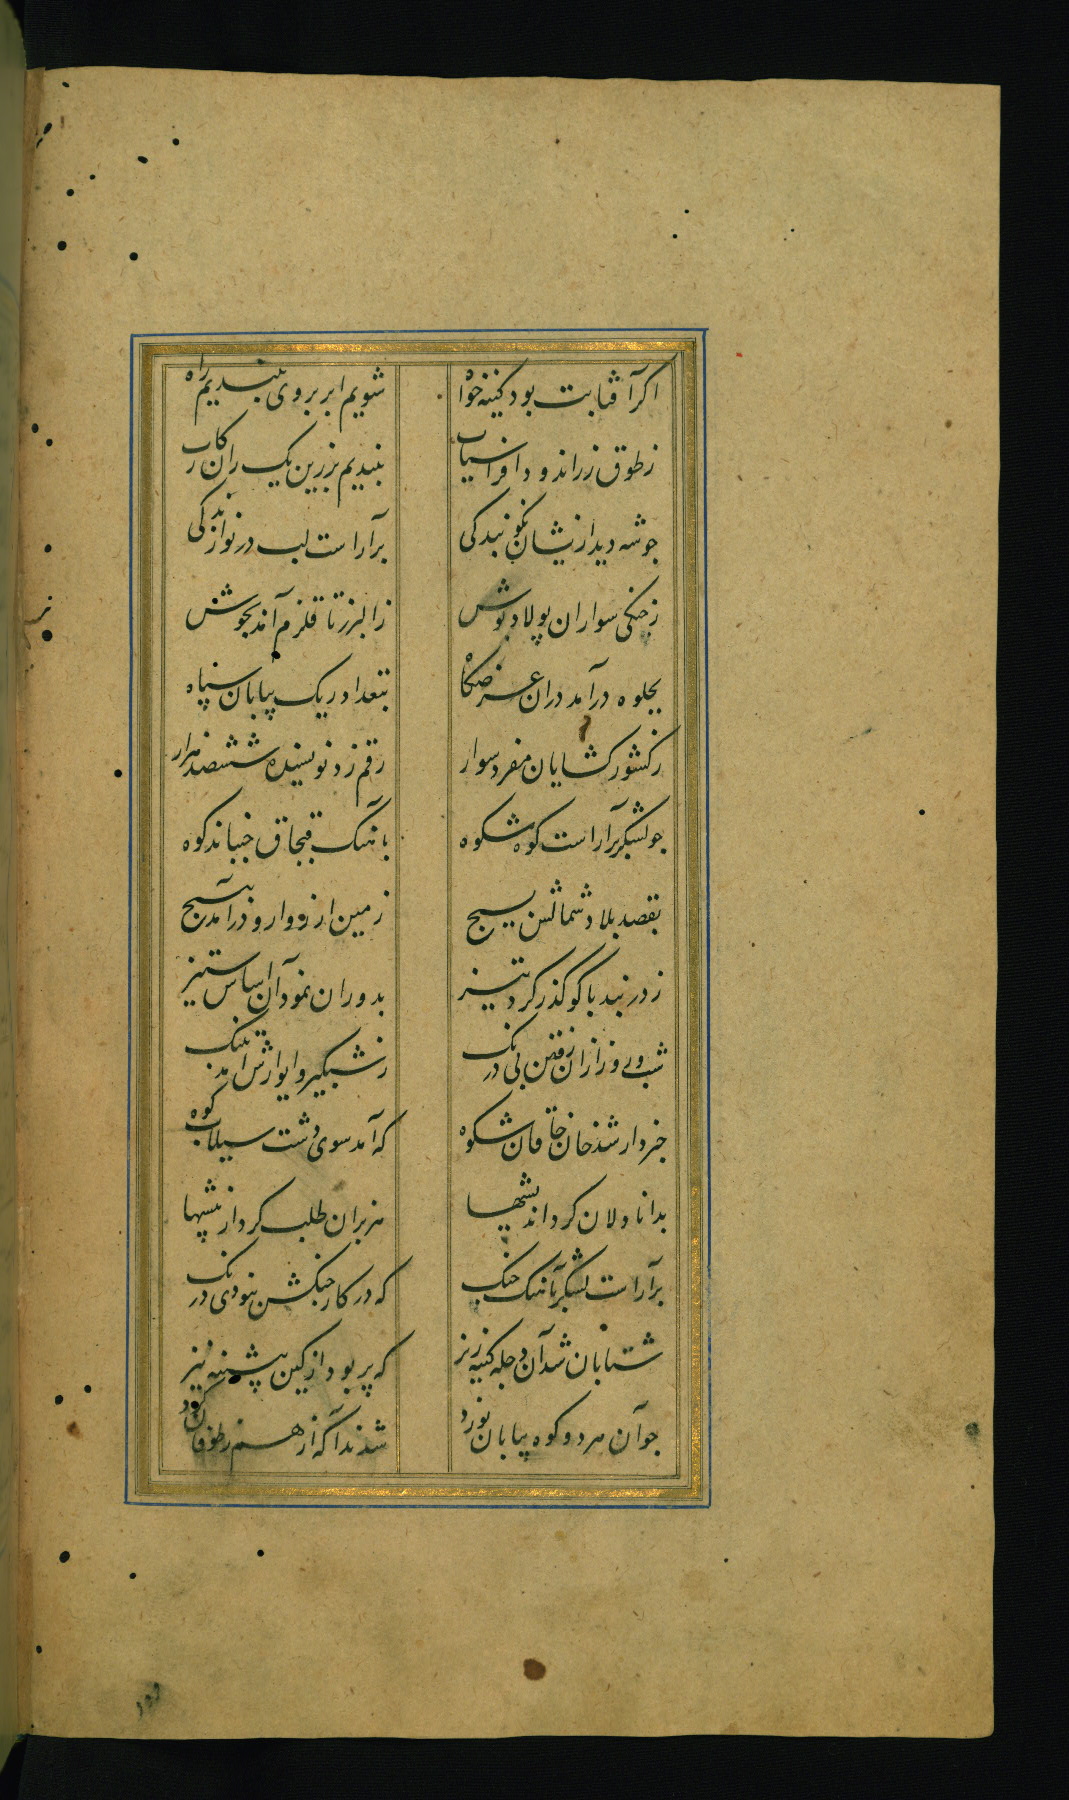 اکر آفتابت بود کینه خواه شویم ابر بروی ببندیم راه
ز طوق زر اندود افراسیاب ببندیم بر زرین یک ران رکاب
جو شه دید ازیشان نکو بندکی برآراست لب در نوازندکی
ز جنکی سواران پولاد پوش ز البرز تا قلزم آمد بجوش
بجلوه درآمد دران عرضکاه بتعداد ریک بیابان سپاه
ز کشورکشایان منفرد سوار رقم زد نویسنده ششصد هزار
جو لشکر برآراست کوه شکوه بآهنک قبجاق جنباند کوه
بقصد بلاد شمالش بسیج زمین از زوارو درآمد به پیج
ز دربند باکو کذر کرد تیز بدوران نمود آن اساس ستیز
شب و روز ازان رفتن بی درنک ز شبکیر و ایوارش آمد بتنک
خبردار شد خان خاقان شکوه که آمد سوی دشت سیلاب کوه
بدانا دلان کرد اندیشها هزبران طلب کرد از بیشها
برآراست لشکر بآهنک جنک که در کار جنکش نبودی درنک
شتابان شد آن دجله کینه ریز که پر بود از کین پیشینه نیز
جو آن هر دو کوه بیابان نورد شدند آکه از هم ز طوفان کرد